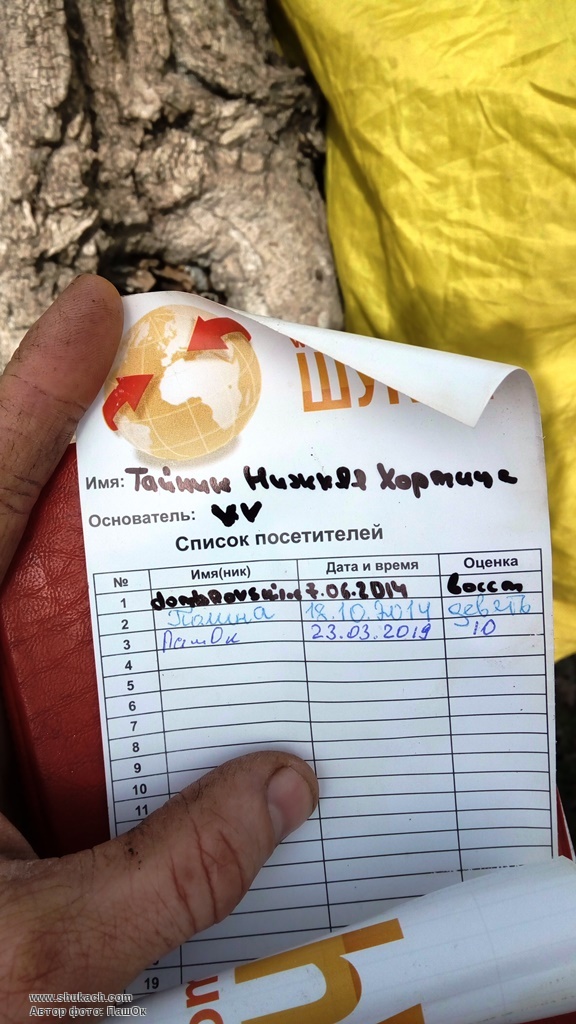 ШУК
Имя: Тайник Нижняя Хортица
Основатель: VV
Список посетителей
№ Имя(ник) Дата и время Оценка
1 7.06.2014 восст
2 Полина 18.10.2014 девять
3 ПашОк 23.03.2019 10
4
5
6
7
8
9
10
11
19
www.shukach.com
Автор фото: ПашОк